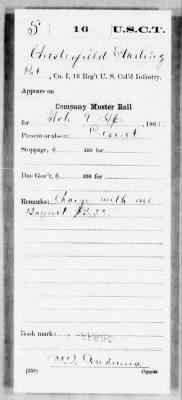 S | 16 | U.S.C.T.
Chesterfield Starling
Pvt, Co. I, 16 Reg't U. S. Col'd Infantry.
Appears on
Company Muster Roll
for Mch & Apr, 186
Present or absent Present
Stoppage, $ 100 for
Due Gov't, $ 100 for
Remarks: Charge with one
Bayonet
Book mark:
(358) Copyist.